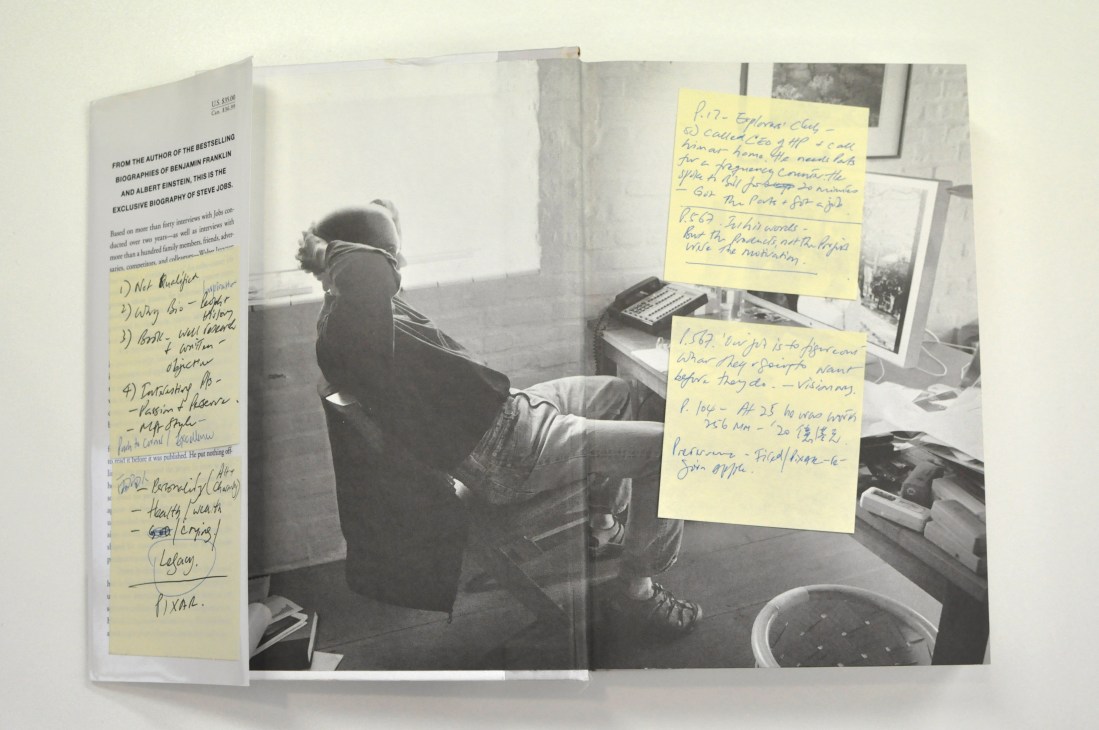 U.S. $35.00
FROM THE AUTHOR OF THE BESTSELLING
BIOGRAPHIES OF BENJAMIN FRANKLIN
AND ALBERT EINSTEIN, THIS IS THE
EXCLUSIVE BIOGRAPHY OF STEVE JOBS.
Based on more than forty interviews with Jobs con-
ducted over two years—as well as interviews with
more than a hundred family members, friends, adver-
saries, competitors, and colleagues—Walter
1) Not Qualified
2) Why Bio - People +
History
3) Book - well research
+ written -
objective
4) Interesting
- Passion +
- Style -
read it before it was published. He put nothing off
- Personality (
- Health / wealth
- / crying /
Legacy.
PIXAR.
P.17 - Explorers' Club -
called CEO of HP + call
him at home. He needs parts
for a frequency counter. He
spoke to Bill for 20 minutes
- Got the Parts + got a job
P.567. In his words -
But the products, not the profits
were the motivation.
P.567. 'Our job is to figure out
what they going to want
before they do. - Visionary
P. 104 - At 25 he was worth
256 MM - '20 億港元
- Fired / Pixar - Re-
join apple.